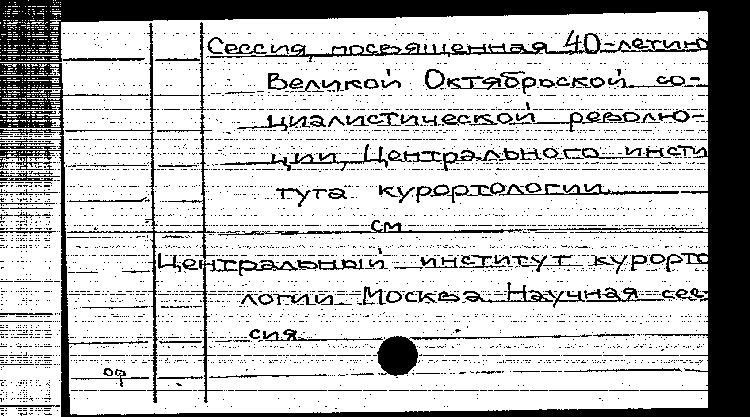 Сессия, посвященная 40-летию
Великой Октябрьской со-
циалистической револю-
ции, Центрального инсти
тута курортологии
см
Центральный институт курорто
логии. Москва. Научная сес-
сия